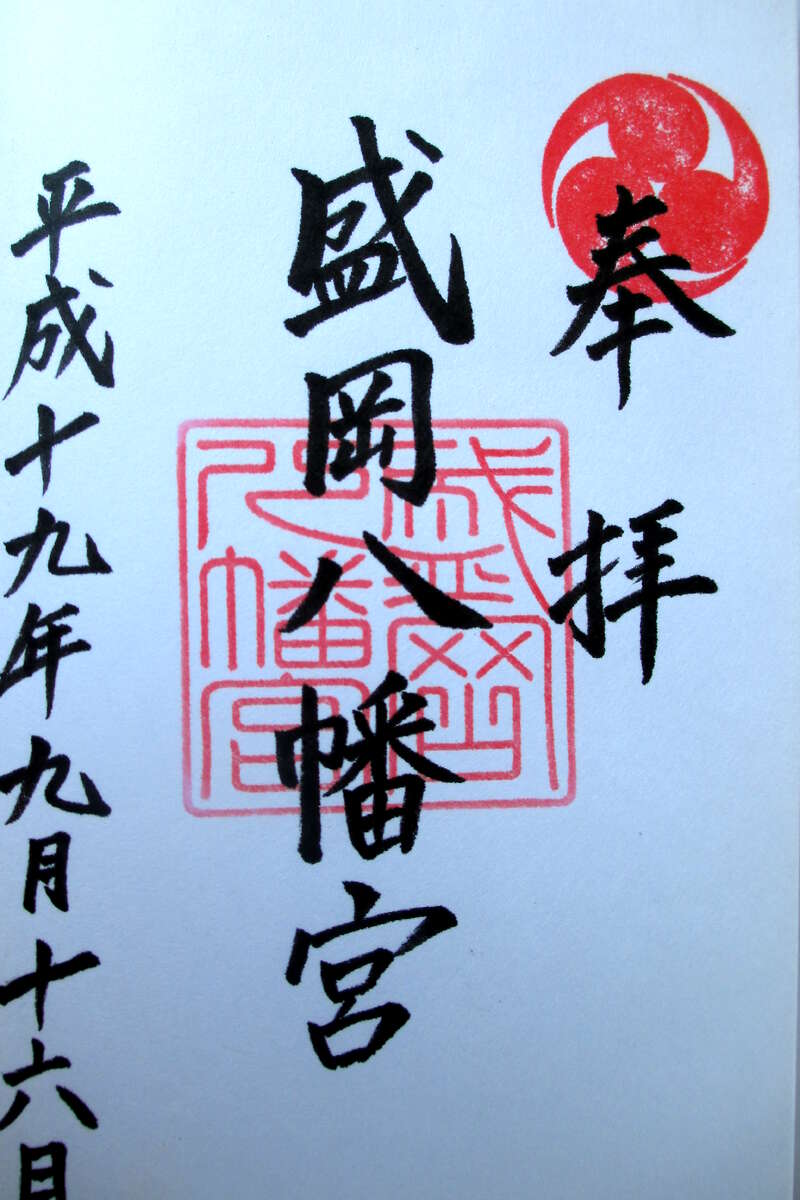 奉拝
盛岡八幡宮
盛岡八幡宮
平成十九年九月十六日